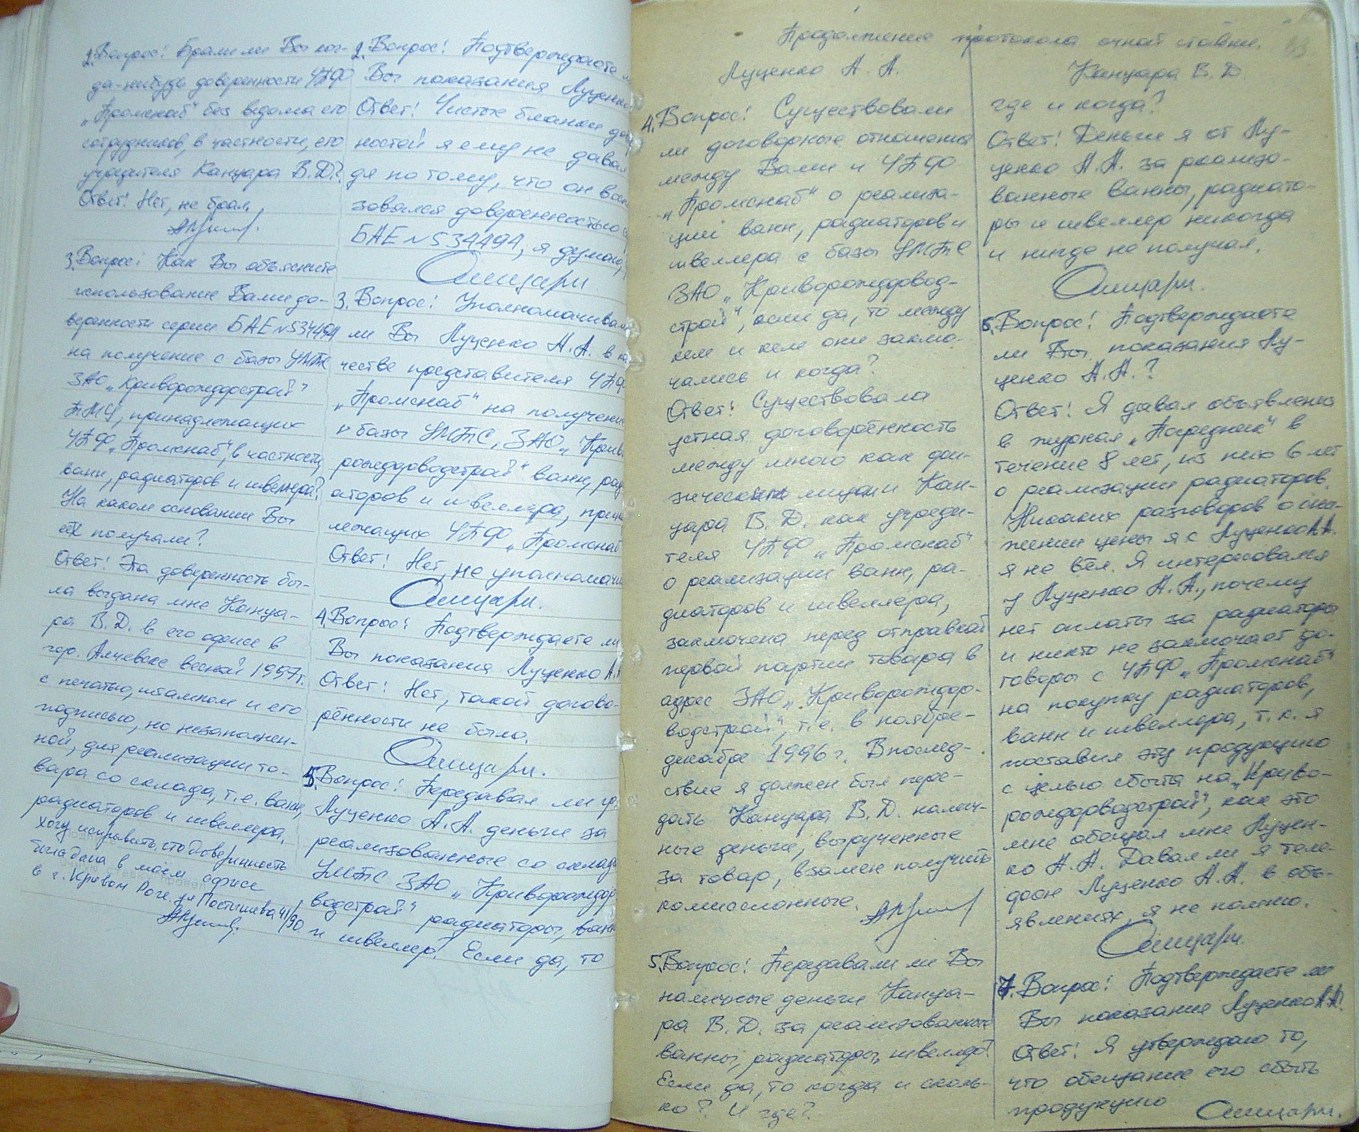 2. Вопрос! Брали ли Вы ког-
да-нибудь доверенности ЧПФ
„Промснаб" без ведома его
сотрудников, в частности, его
учредителя Канцара В.Д.?
Ответ! Нет, не брал.
3. Вопрос! Как Вы объясните
использование Вами до-
веренности серии БАЕ №534494
на получение с базы УМТС
ЗАО „Криворождострой"
ТМЦ, принадлежащих
ЧПФ „Промснаб", в частности,
ванн, радиаторов и швеллера?
На каком основании Вы
её получали?
Ответ! Эта доверенность бы-
ла выдана мне Канца-
ра В.Д. в его офисе в
гор. Алчевске весной 1997г.
с печатью, штампом и его
подписью, но незаполнен-
ной, для реализации то-
вара со склада, т.е. ванн,
радиаторов и швеллера.
Хочу исправить, что доверенность
была дана в моём офисе
в г. Кривом Роге, ул Постышева 4/90
2. Вопрос! Подтверждаете
Вы показания Луценко
Ответ! Чистые бланки до
ностей я ему не давал
дя по тому, что он
зовался доверенностью
БАЕ №534494, я думаю,
3. Вопрос! Уполномачивал
ли Вы Луценко А.А. в ка
честве представителя ЧПФ
„Промснаб" на получени
с базы УМТС, ЗАО „Криво
рождорводстрой" ванн, рад
аторов и швеллера, прин
лежащих ЧПФ „Промснаб
Ответ! Нет, не уполномачи
4. Вопрос! Подтверждаете ли
Вы показания Луценко А.А
Ответ! Нет, такой догово-
рённости не было.
5. Вопрос! Передавал ли гр
Луценко А.А. деньги за
реализованные со склада
УМТС ЗАО „Криворождор
водстрой" радиаторы, ванн
и швеллер! Если да, то
Продолжение протокола очной ставки.
Луценко А. А.
4. Вопрос! Существовали
ли договорные отношения
между Вами и ЧПФ
„Промснаб" о реализа-
ции ванн, радиаторов и
швеллера с базы УМТС
ЗАО „Криворождорвод-
строй", если да, то между
кем и кем они заклю-
чались и когда?
Ответ! Существовала
устная договорённость
между мною как фи-
зическим лицом и Кан-
цара В.Д. как учреди-
теля ЧПФ „Промснаб"
о реализации ванн, ра-
диаторов и швеллера,
заключена перед отправкой
первой партии товара в
адрес ЗАО „Криворождор-
водстрой", т.е. в ноябре-
декабре 1996г. Впослед-
ствие я должен был пере-
дать Канцара В.Д. налич-
ные деньги, вырученные
за товар, взамен получить
комиссионные.
5. Вопрос! Передавали ли Вы
наличные деньги Канца-
ра В.Д. за реализованные
ванны, радиаторы, швеллер?
Если да, то когда и сколь-
ко? И где?
Канцара В. Д
где и когда?
Ответ! Деньги я от Лу-
ценко А.А. за реализо-
ванные ванны, радиато-
ры и швеллер никогда
и нигде не получал.
6. Вопрос! Подтверждаете
ли Вы показания Лу-
ценко А.А.?
Ответ! Я давал объявления
в журнал „Посредник" в
течение 8 лет, из них 6 лет
о реализации радиаторов.
Никаких разговоров о сни-
жении цены я с Луценко А.А.
я не вёл. Я интересовался
у Луценко А.А., почему
нет оплаты за радиаторы
и никто не заключает до-
говоры с ЧПФ „Промснаб"
на покупку радиаторов,
ванн и швеллера, т.к. я
поставил эту продукцию
с целью сбыта на „Криво-
рождорводстрой", как это
мне обещал мне Луцен-
ко А.А. Давал ли я теле-
фон Луценко А.А. в объ-
явлениях, я не помню.
7. Вопрос! Подтверждаете ли
Вы показания Луценко А.А.
Ответ! Я утверждаю то,
что обещание его сбыть
продукцию